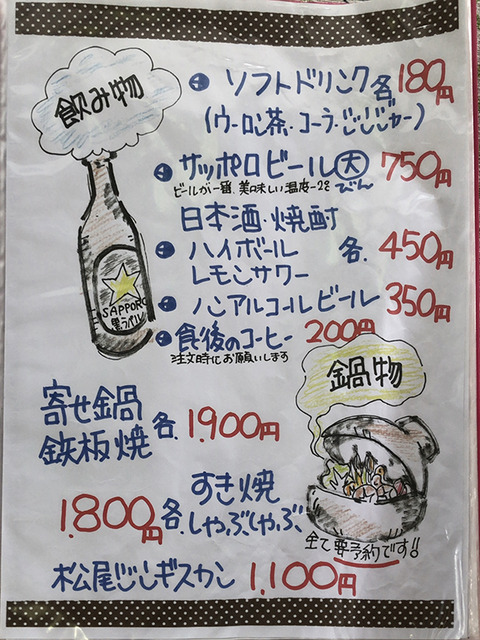 飲み物
ソフトドリンク各180円
(ウーロン茶・コーラ・じじじゃー)
サッポロビール大びん 750円
ビールが一番、美味しい温度-2℃
日本酒・焼酎
ハイボール 各. 450円
レモンサワー
ノンアルコールビール 350円
食後のコーヒー 200円
注文時にお願いします
SAPPORO
黒ラベル
鍋物
寄せ鍋
鉄板焼 各. 1.900円
すき焼
しゃぶしゃぶ 各. 1.800円
全て要予約です!!
松尾じんギスカン 1,100円